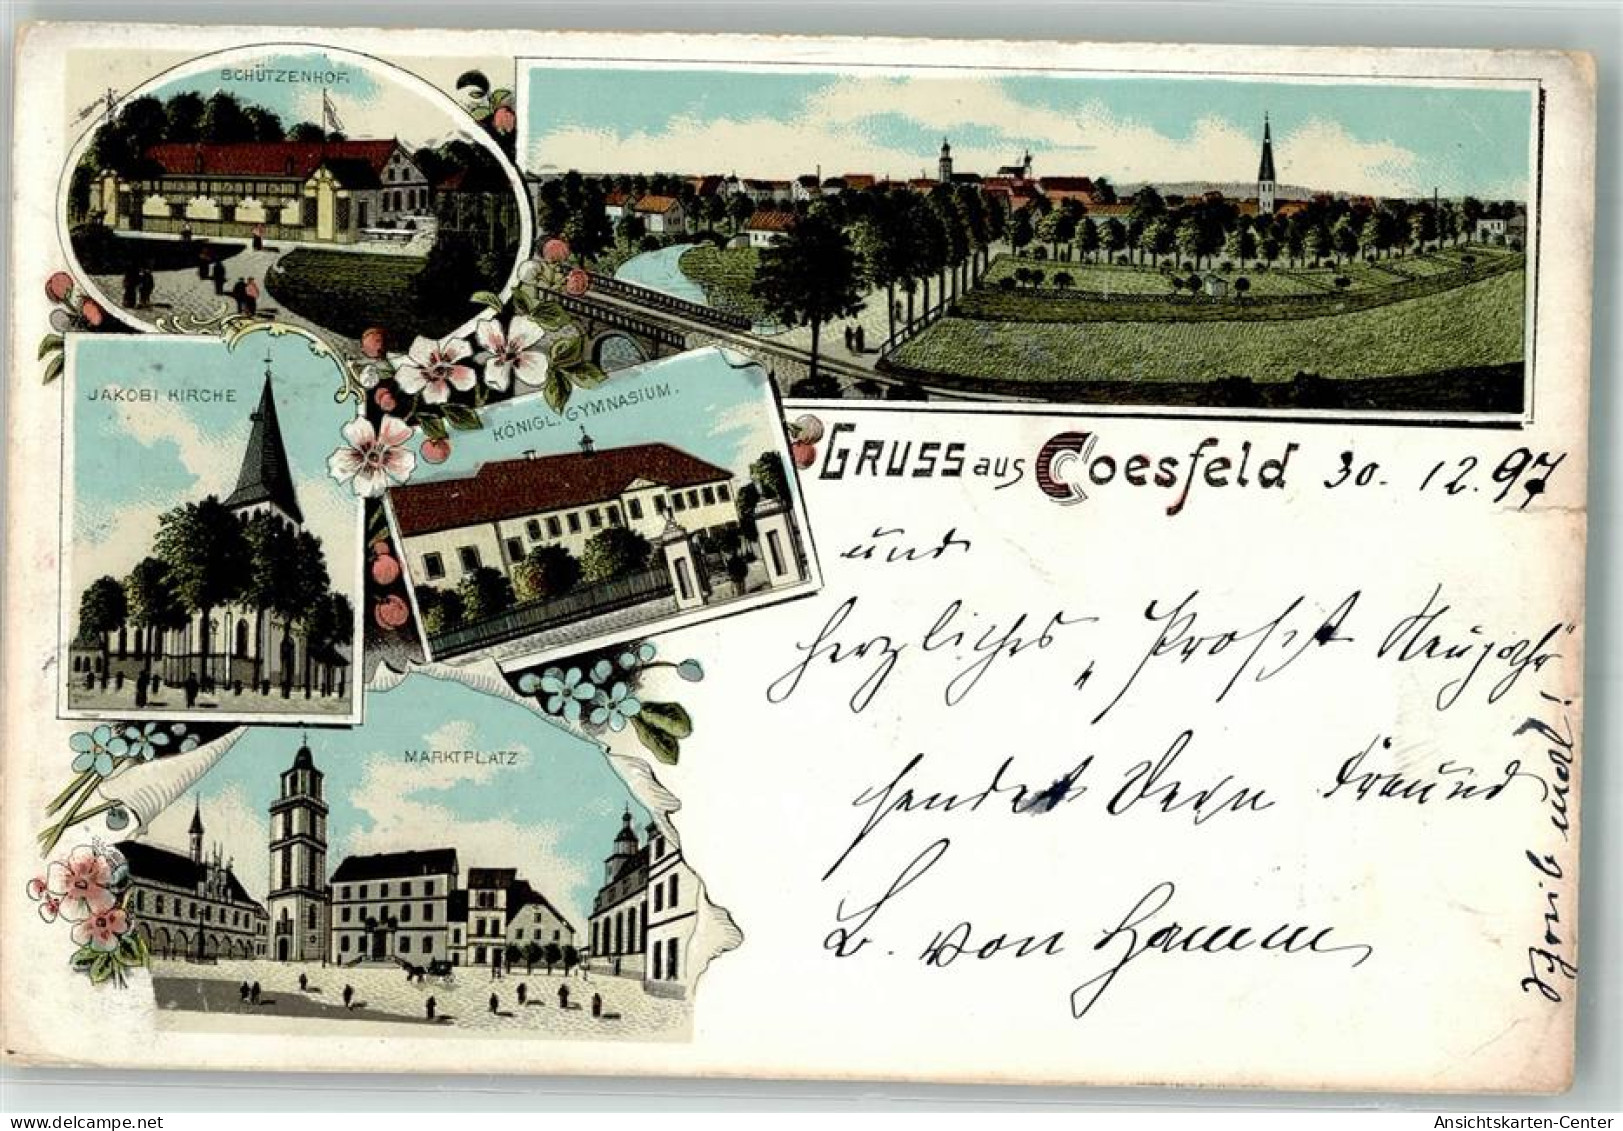 SCHÜTZENHOF.
JAKOBI KIRCHE
KÖNIGL. GYMNASIUM.
MARKTPLATZ
GRUSS aus Coesfeld 30. 12. 97
und
herzliches „Prosit Neujahr"
sendet Dein Freund
B. von Hamm
Schreib mal!
Ansichtskarten-Center